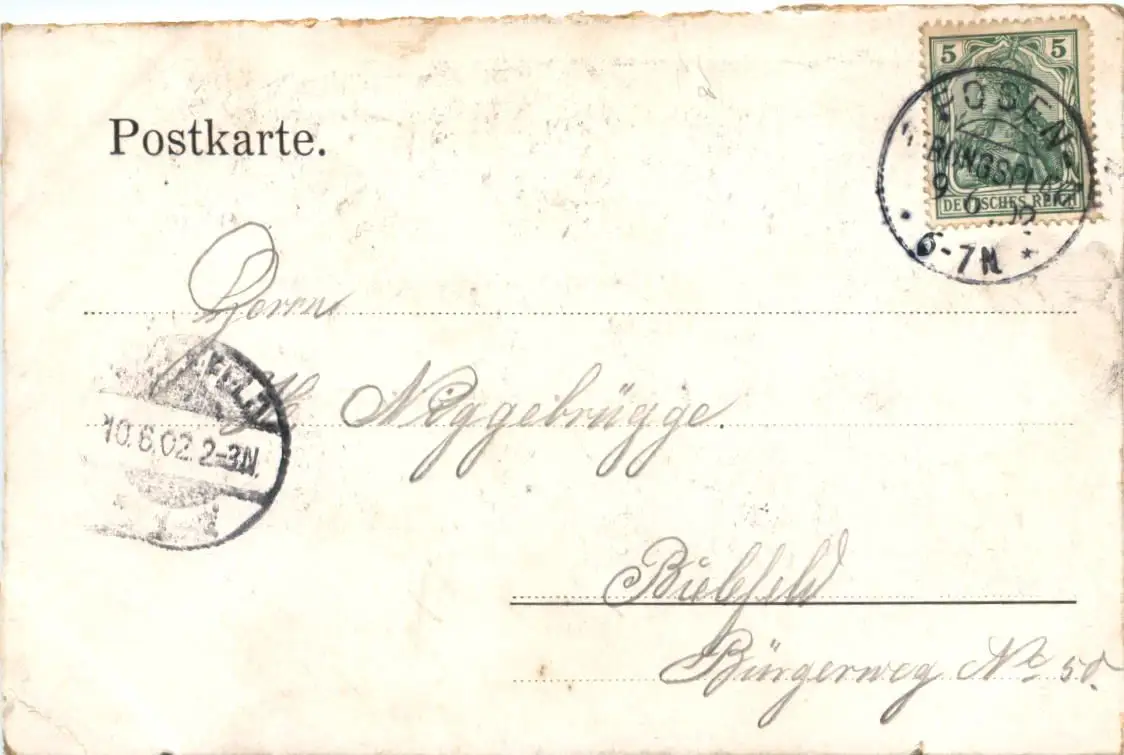 5 5
POSEN
BUNGSPLATZ
DEUTSCHES REICH
9 6 02
6-7N
Postkarte.
Herrn
H. Niggebrügge.
10.6.02. 2-3N.
Bielefeld
Bürgerweg No 50.